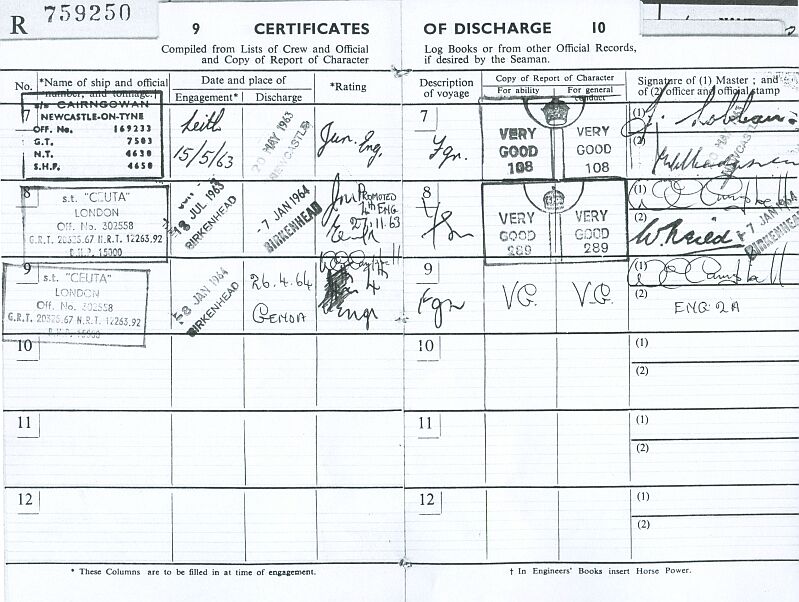 R 759250
9 CERTIFICATES OF DISCHARGE 10
Compiled from Lists of Crew and Official Log Books or from other Official Records,
and Copy of Report of Character if desired by the Seaman.
No.
*Name of ship and official
number, and tonnage.†
Date and place of
Engagement*
Discharge
*Rating
Description
of voyage
Copy of Report of Character
For ability
For general
conduct
Signature of (1) Master; and
of (2) officer and official stamp
7
s/s CAIRNGOWAN
NEWCASTLE-ON-TYNE
OFF. No. 169233
G.T. 7503
N.T. 4630
S.H.P. 4650
Leith
15/5/63
MAY 1963
NEWCASTLE
Jun. Eng.
7
Fgn.
VERY
GOOD
108
VERY
GOOD
108
(1)
(2)
8
s.t. "CEUTA"
LONDON
Off. No. 302558
G.R.T. 20325.67 N.R.T. 12263.92
B.H.P. 15000
18 JUL 1963
BIRKENHEAD
-7 JAN 1964
BIRKENHEAD
Jun
Eng
PROMOTED
4th ENG
27.11.63
8
Fgn
VERY
GOOD
289
VERY
GOOD
289
(1)
(2)
-7 JAN 1964
BIRKENHEAD
9
s.t. "CEUTA"
LONDON
Off. No. 302558
G.R.T. 20325.67 N.R.T. 12263.92
B.H.P. 15000
-8 JAN 1964
BIRKENHEAD
26.4.64
GENOA
4
Engr
9
Fgn
V.G.
V.G.
(1)
(2)
ENG 2A
10
10
(1)
(2)
11
11
(1)
(2)
12
12
(1)
(2)
* These Columns are to be filled in at time of engagement.
† In Engineers' Books insert Horse Power.